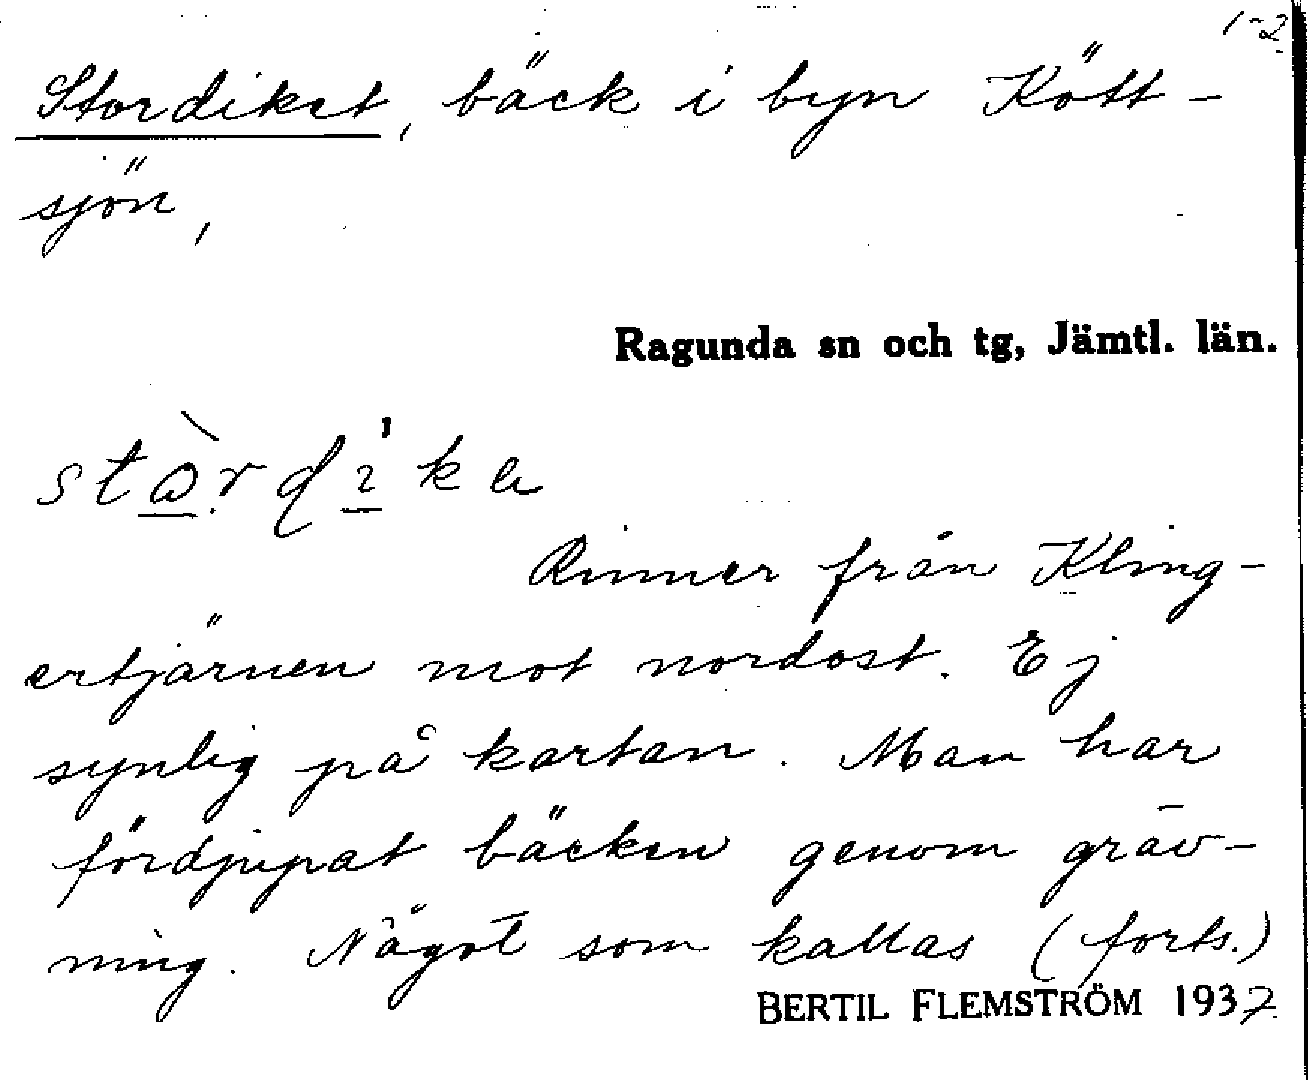 1-2
Stordiket, bäck i byn Kött-
sjön,
Ragunda sn och tg, Jämtl. län.
Rinner från Kling-
ertjärnen mot nordost. Ej
synlig på kartan. Man har
fördjupat bäcken genom gräv-
ning. Något som kallas (forts.)
BERTIL FLEMSTRÖM 1937